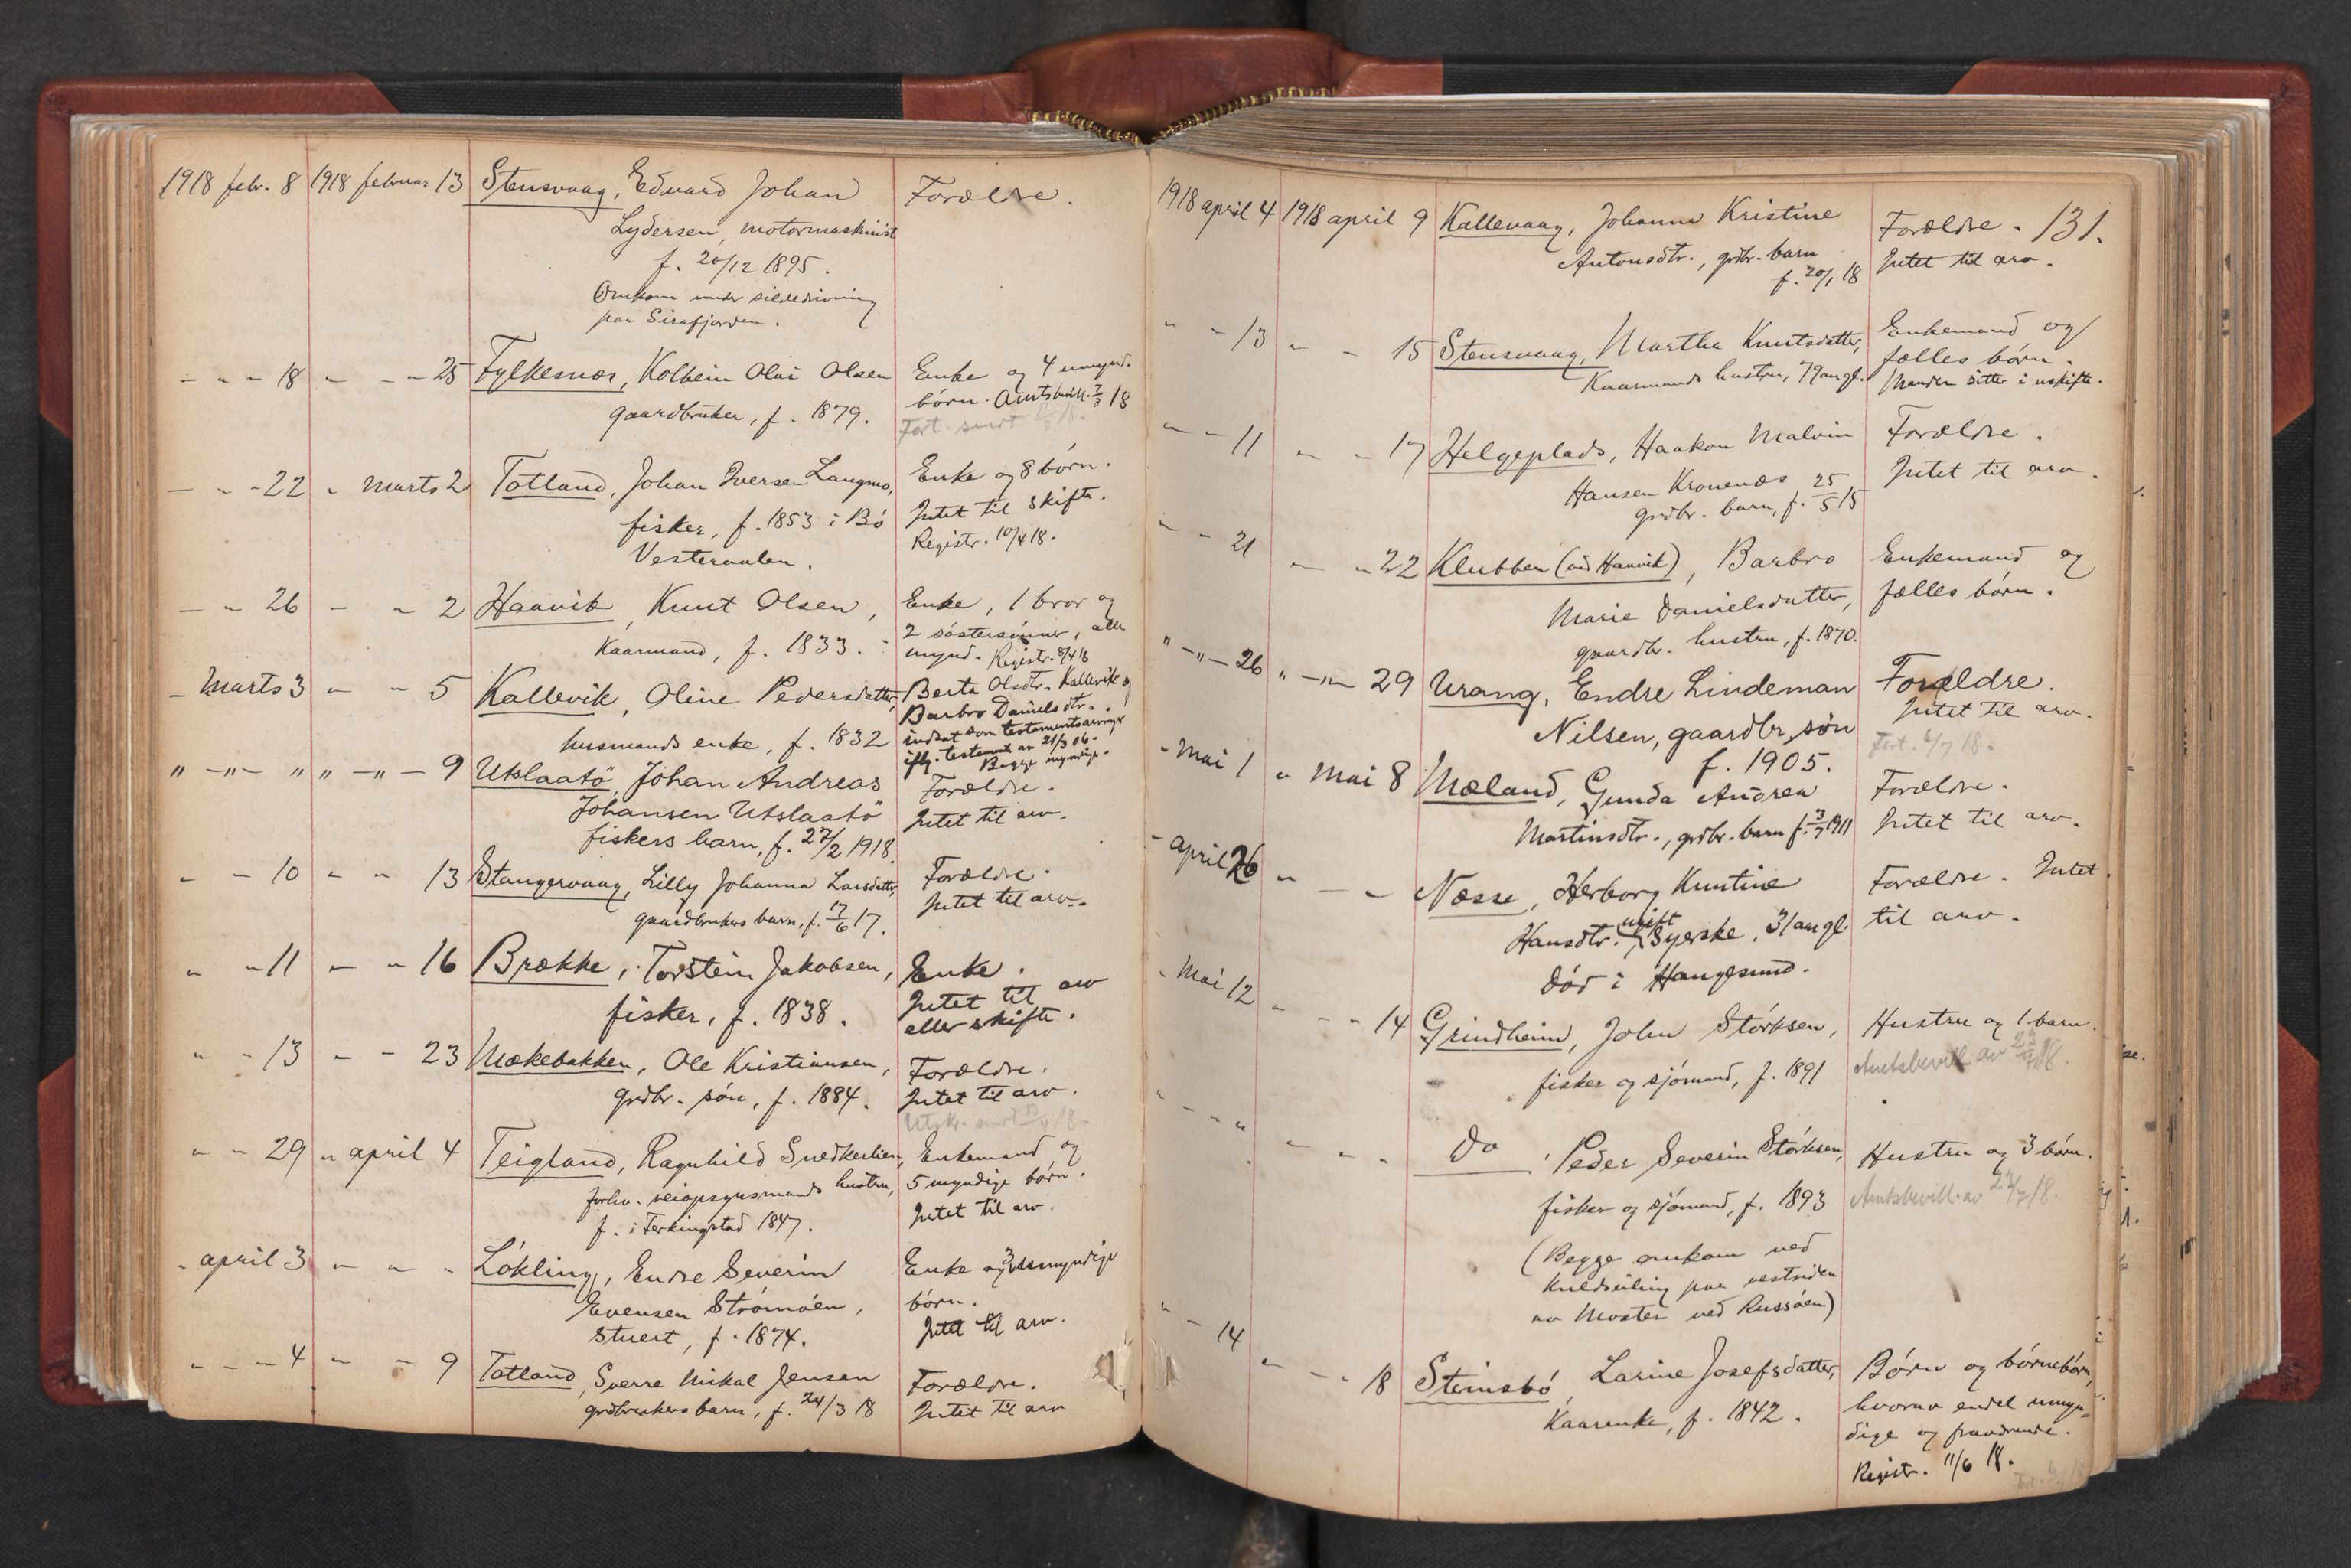 1918 febr. 8 1918 februar 13 Stensvaag, Edvard Johan Forældre.
Lydersen, motormaskinist
f. 20/12 1895.
Omkom under sildedrivning
paa Sirafjorden.
- - - 18 - - - 25 Fylkesnes, Kolbein Olai Olsen Enke og 4 umynd.
gaardbruker, f. 1879. børn. Amtsbevill. 7/3 18
Fort. sendt
- - - 22 " marts 2 Totland, Johan Iversen Langmo, Enke og 8 børn.
fisker, f. 1853 i Bö Intet til skifte.
Vesteraalen. Registr. 10/4 18.
- - 26 - - 2 Haavik, Knut Olsen, Enke, 1 bror og
Kaarmand, f. 1833. 2 söstersönner, alle
mynd. Registr. 8/4 18
- Marts 3 - - 5 Kallevik, Oline Pedersdatter, Berta Olsdtr. Kallevik og
Barbro Daniels dtr.
husmands enke, f. 1832 indsat som testamentsarvinger
iflg. testament av 21/3 06.
Begge myndige.
" -"- " " -"- 9 Utslaatö, Johan Andreas Forældre.
Johansen Utslaatö Intet til arv.
fiskers barn, f. 27/2 1918.
- - 10 - - 13 Stangervaag, Lilly Johanna Larsdatter, Forældre.
gaardbrukers barn, f. 17/6 17. Intet til arv.
" - 11 - - 16 Brække, Torstein Jakobsen, Enke.
fisker, f. 1838. Intet til arv
eller skifte.
" - 13 - - 23 Mækebakken, Ole Kristiansen, Forældre.
grdbr. søn, f. 1884. Intet til arv.
Utskr. sendt
" - 29 " april 4 Teigland, Ragnhild Snedkerlien, Enkemand og
forhv. veiopsynsmands hustru, 5 myndige børn.
f. i Ferkingstad 1847. Intet til arv.
- april 3 - - - Lökling, Endre Severin Enke og 3 umyndige
Evensen Strömöen, børn.
stuert, f. 1874. Intet til arv.
- - - 4 - - 9 Totland, Sverre Mikal Jensen Forældre.
grdbrukers barn, f. 24/3 18 Intet til arv
1918 april 4 1918 april 9 Kallevaag, Johanna Kristine Forældre. 131.
Antonsdtr., grdbr. barn Intet til arv.
f. 20/1 18
" - 13 - - 15 Stensvaag, Martha Knutsdatter, Enkemand og
Kaarmands hustru, 79 aar gl. fælles børn.
Manden sitter i uskifte.
" - 11 - - 17 Helgeplads, Haakon Malvin Forældre.
Hansen Kronenes Intet til arv.
grdbr. barn, f. 25/5 15
" - 21 - - 22 Klubben (ved Haavik), Barbro Enkemand og
Marie Danielsdatter, fælles børn.
gaardbr. hustru, f. 1870.
" -"- 26 " -"- 29 Urang, Endre Lindeman Forældre.
Nilsen, gaardbr. søn Intet til arv.
f. 1905. Fort. 6/7 18.
- Mai 1 " Mai 8 Mæland, Gunda Andrea Forældre.
Martinsdtr., grdbr. barn f. 3/7 1911 Intet til arv.
- april 26 " - - Næsse, Herborg Knutine Forældre. Intet
Hansdtr. ugift Syerske, 31 aar gl. til arv.
död i Haugesund.
- Mai 12 - - - 14 Grindheim, John Störksen, Hustru og 1 barn.
fisker og sjömand, f. 1891 Amtsbevill. av
" - - " - - - Do, Peder Severin Störksen, Hustru og 3 børn.
fisker og sjömand, f. 1893 Amtsbevill. av
(Begge omkom ved
kuldseiling paa vestsiden
av Moster ved Russöen)
" - 14 - - - 18 Steinsbö, Larine Josefsdatter, Børn og børnebørn,
Kaarenke, f. 1842. hvorav endel umyn-
dige og fraværende.
Registr. 11/6 18.